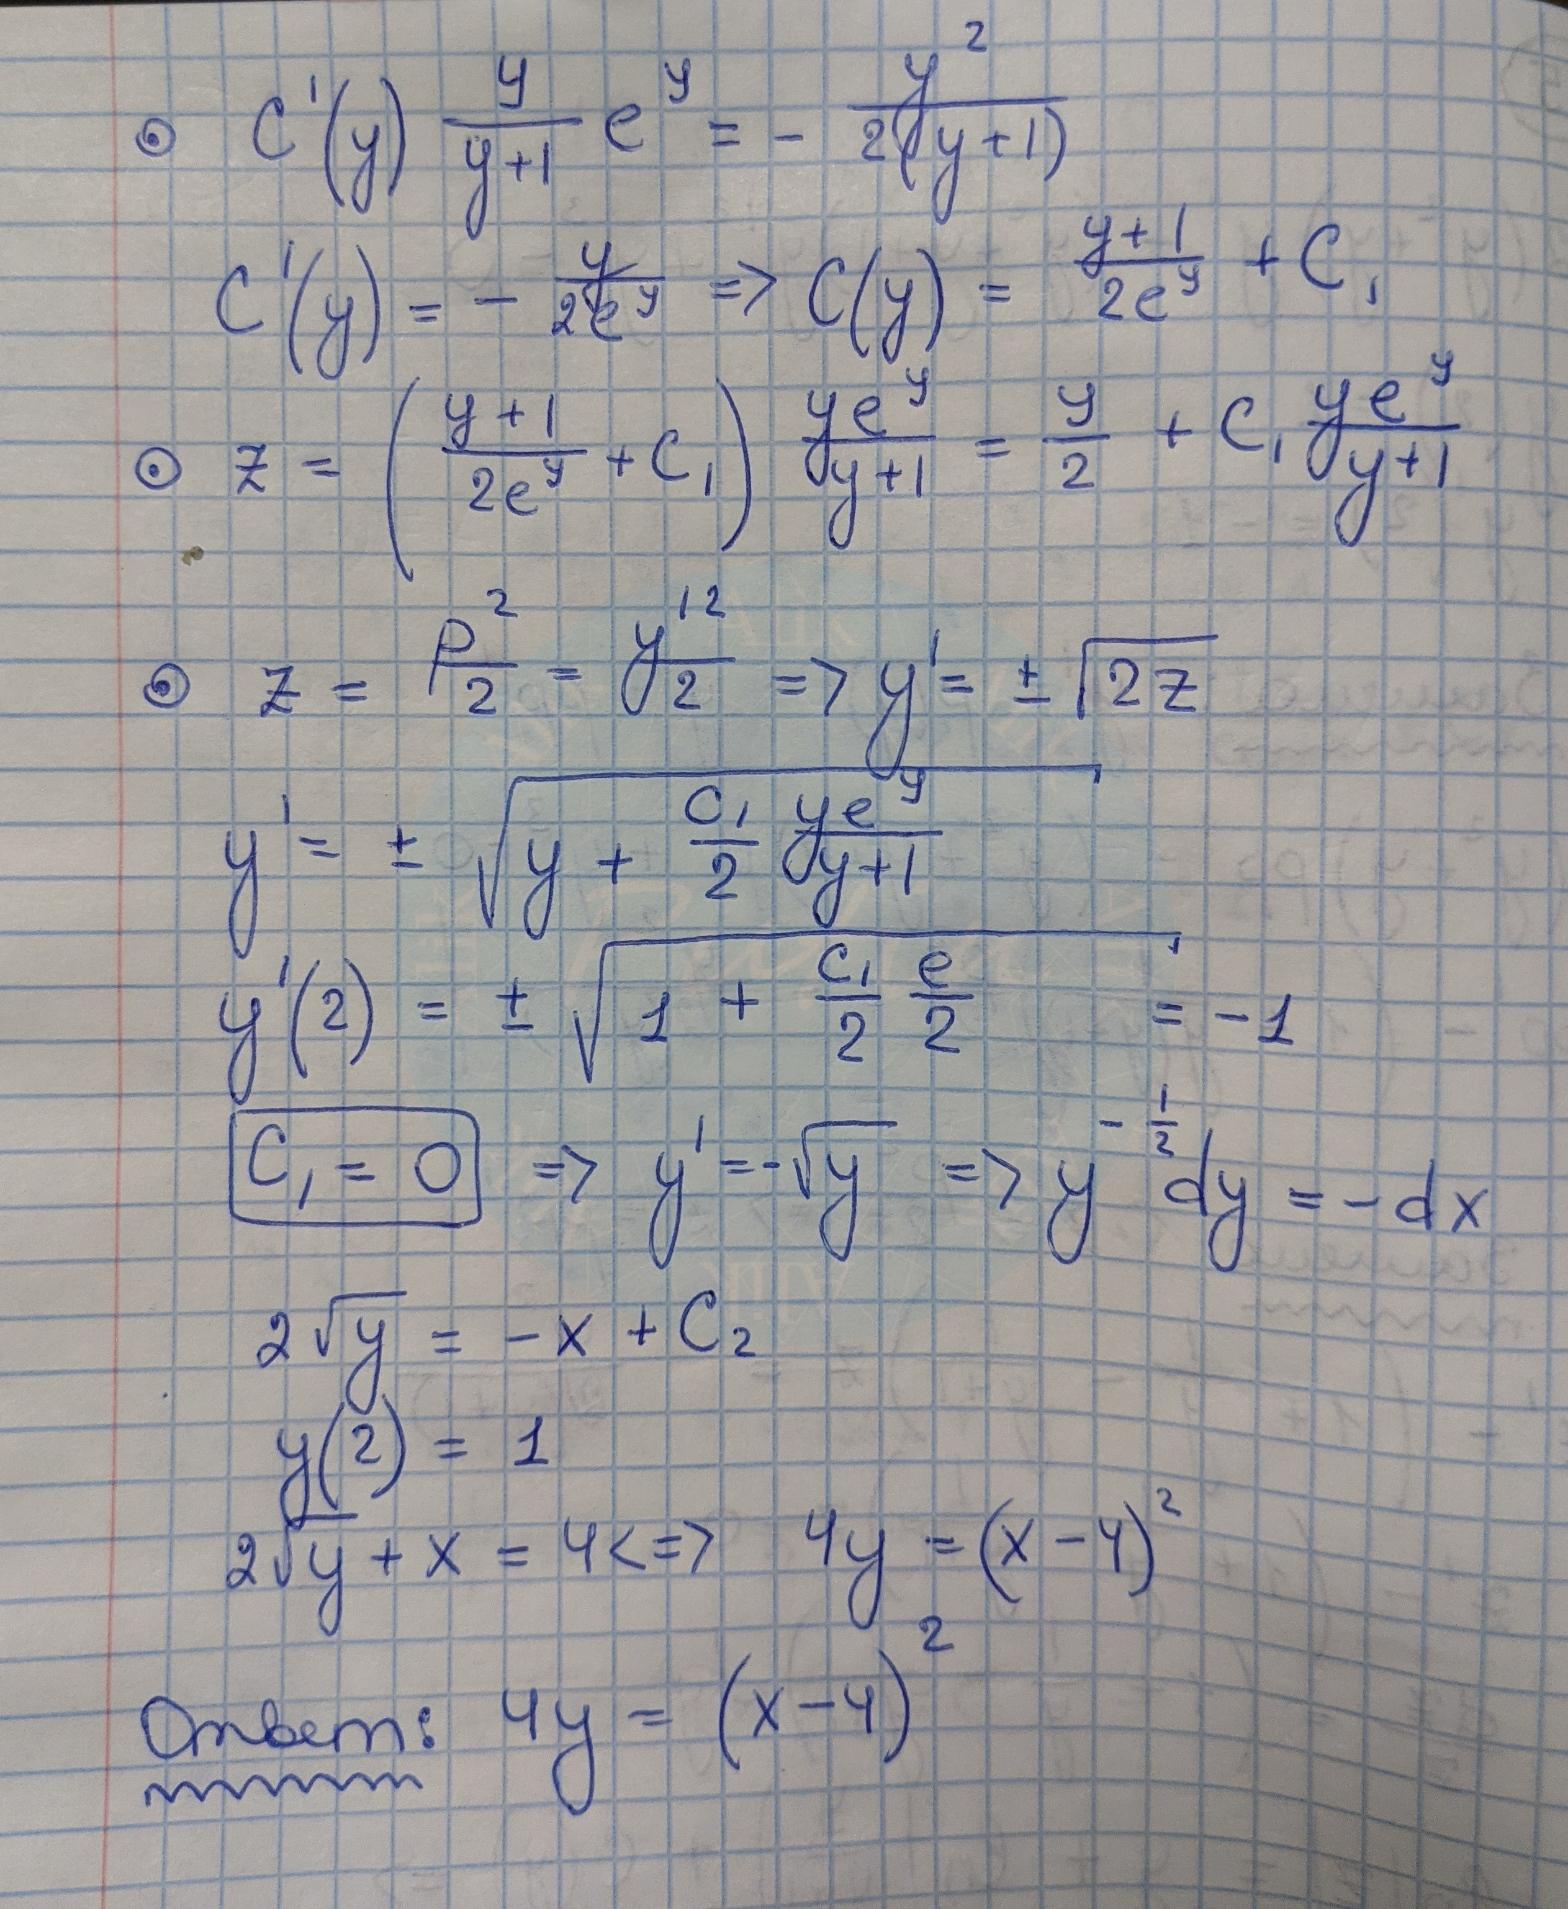 ⊙ C'(y) y/(y+1) e^y = - y^2/(2(y+1))
C'(y) = - y/(2e^y) => C(y) = (y+1)/(2e^y) + C₁
⊙ z = ((y+1)/(2e^y) + C₁) ye^y/(y+1) = y/2 + C₁ ye^y/(y+1)
⊙ z = p^2/2 = y'^2/2 => y' = ± √(2z)
y' = ± √(y + C₁/2 ye^y/(y+1))
y'(2) = ± √(1 + C₁/2 e/2) = -1
C₁ = 0 => y' = -√y => y^(-1/2) dy = -dx
2√y = -x + C₂
y(2) = 1
2√y + x = 4 <=> 4y = (x-4)^2
Ответ: 4y = (x-4)^2